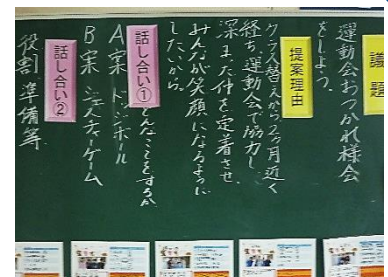 議題
運動会おつかれ様会
をしよう。
提案理由
クラス替えから2ヶ月近く
経ち、運動会で協力し
深まった仲を定着させ、
みんなが笑顔になるように
したいから。
話し合い① どんなことをするか
A案 ドッジボール
B案 ジェスチャーゲーム
話し合い②
役割、準備等